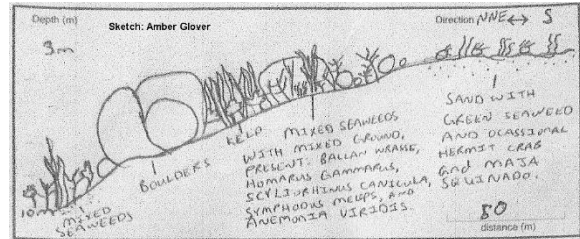 Depth (m)
Sketch: Amber Glover
Direction NNE ↔ S
3m
10m
MIXED
SEAWEEDS
BOULDERS
KELP
MIXED SEAWEEDS
WITH MIXED GROUND,
PRESENT: BALLAN WRASSE,
HOMARUS GAMMARUS,
SCYLIORHINUS CANICULA,
SYMPHODUS MELOPS, AND
ANEMONIA VIRIDIS.
SAND WITH
GREEN SEAWEED
AND OCASSIONAL
HERMIT CRAB
and MAJA
SQUINADO.
80
distance (m)